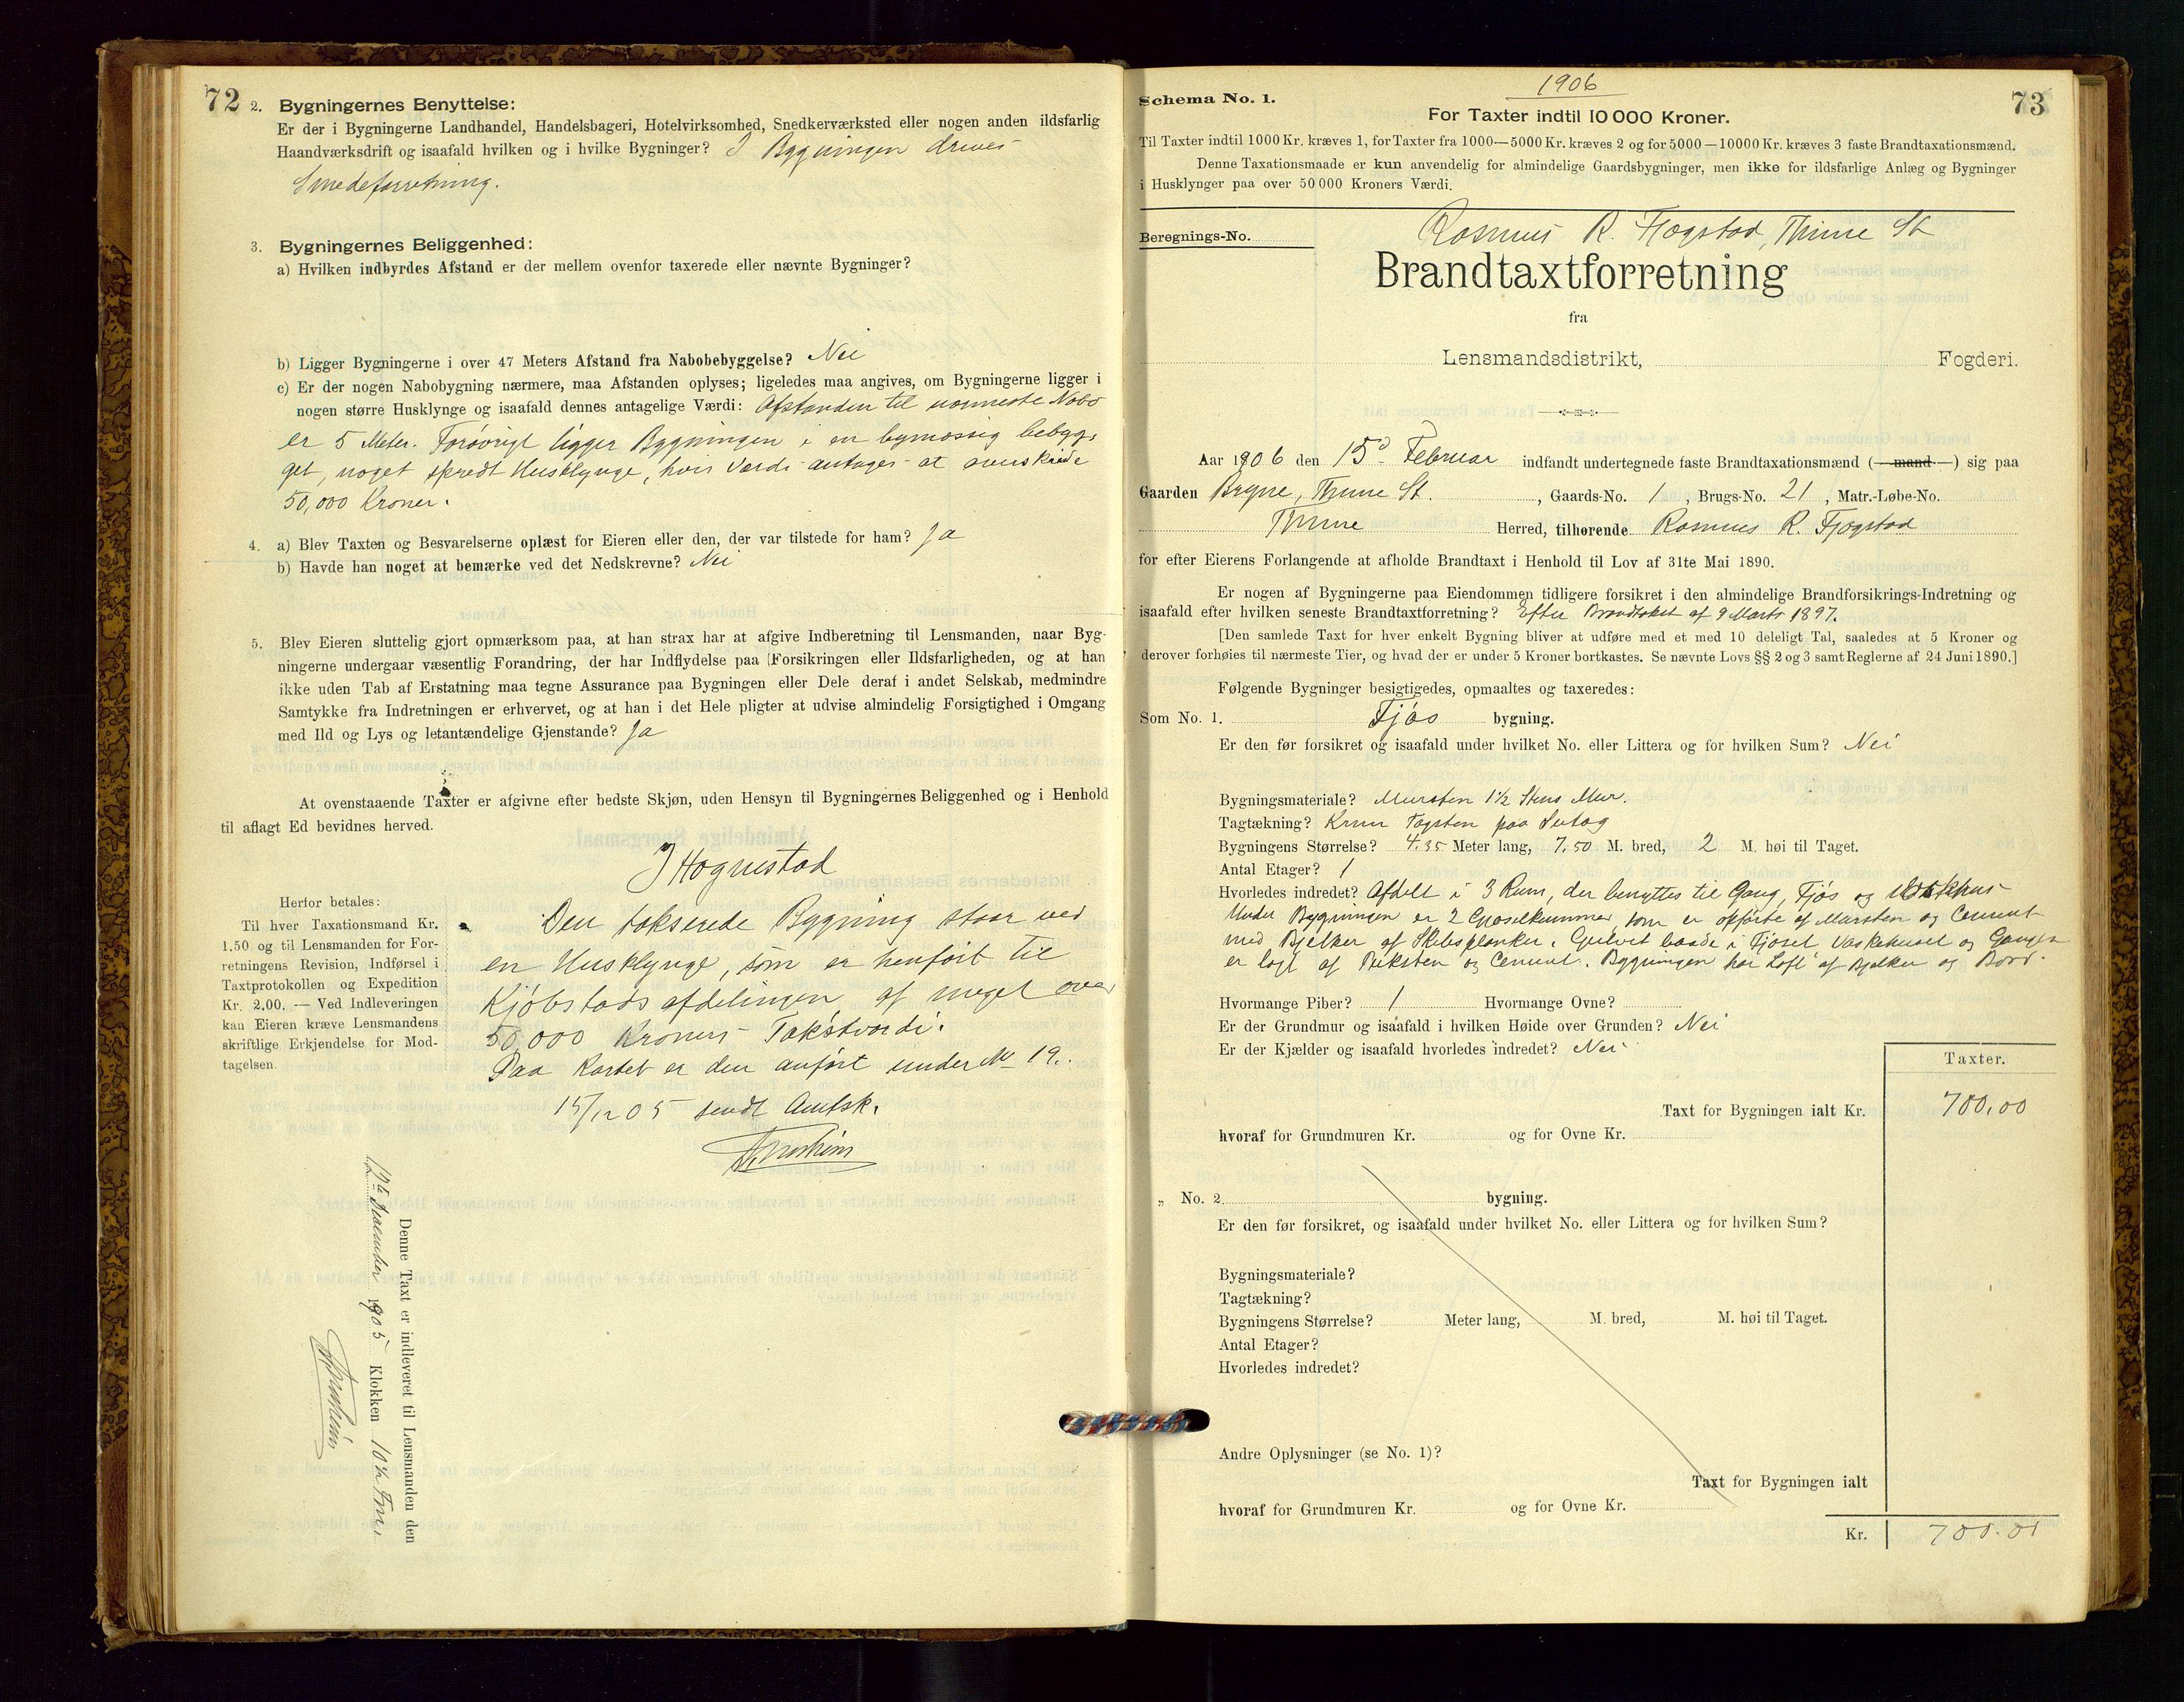 72
2. Bygningernes Benyttelse:
Er der i Bygningerne Landhandel, Handelsbageri, Hotelvirksomhed, Snedkerværksted eller nogen anden ildsfarlig
Haandværksdrift og isaafald hvilken og i hvilke Bygninger? I Bygningen drives
Smedeforretning.
3. Bygningernes Beliggenhed:
a) Hvilken indbyrdes Afstand er der mellem ovenfor taxerede eller nævnte Bygninger?
b) Ligger Bygningerne i over 47 Meters Afstand fra Nabobebyggelse? Nei
c) Er der nogen Nabobygning nærmere, maa Afstanden oplyses; ligeledes maa angives, om Bygningerne ligger i
nogen større Husklynge og isaafald dennes antagelige Værdi: Afstanden til nærmeste Nabo
er 5 Meter. Forøvrigt ligger Bygningen i en bymæssig bebyg-
get, noget spredt Husklynge, hvis Værdi antages at overskride
50,000 Kroner.
4. a) Blev Taxten og Besvarelserne oplæst for Eieren eller den, der var tilstede for ham? Ja
b) Havde han noget at bemærke ved det Nedskrevne? Nei
5. Blev Eieren sluttelig gjort opmærksom paa, at han strax har at afgive Indberetning til Lensmanden, naar Byg-
ningerne undergaar væsentlig Forandring, der har Indflydelse paa Forsikringen eller Ildsfarligheden, og at han
ikke uden Tab af Erstatning maa tegne Assurance paa Bygningen eller Dele deraf i andet Selskab, medmindre
Samtykke fra Indretningen er erhvervet, og at han i det Hele pligter at udvise almindelig Forsigtighed i Omgang
med Ild og Lys og letantændelige Gjenstande? Ja
At ovenstaaende Taxter er afgivne efter bedste Skjøn, uden Hensyn til Bygningernes Beliggenhed og i Henhold
til aflagt Ed bevidnes herved.
J Hognestad
Herfor betales:
Til hver Taxationsmand Kr.
1.50 og til Lensmanden for For-
retningens Revision, Indførsel i
Taxtprotokollen og Expedition
Kr. 2.00. — Ved Indleveringen
kan Eieren kræve Lensmandens
skriftlige Erkjendelse for Mod-
tagelsen.
Den takserede Bygning staar ved
en Husklynge, som er henført til
Kjøbstadsafdelingen af meget over
50,000 Kroners Takstværdi.
Paa Kartet er den anført under No 19.
15/12 05 sendt Amtsk.
Denne Taxt er indleveret til Lensmanden den
12te December 1905 Klokken 10½ Fm.
1906
73
Schema No. 1.
For Taxter indtil 10 000 Kroner.
Til Taxter indtil 1000 Kr. kræves 1, for Taxter fra 1000—5000 Kr. kræves 2 og for 5000—10000 Kr. kræves 3 faste Brandtaxationsmænd.
Denne Taxationsmaade er kun anvendelig for almindelige Gaardsbygninger, men ikke for ildsfarlige Anlæg og Bygninger
i Husklynger paa over 50 000 Kroners Værdi.
Beregnings-No.
Rasmus R. Fjogstad, Thime St
Brandtaxtforretning
fra
Lensmandsdistrikt, Fogderi.
Aar 1906 den 15d Februar indfandt undertegnede faste Brandtaxationsmænd (—mand—) sig paa
Gaarden Bryne, Thime St. , Gaards-No. 1 , Brugs-No. 21 , Matr.-Løbe-No.
Thime Herred, tilhørende Rasmus R. Fjogstad
for efter Eierens Forlangende at afholde Brandtaxt i Henhold til Lov af 31te Mai 1890.
Er nogen af Bygningerne paa Eiendommen tidligere forsikret i den almindelige Brandforsikrings-Indretning og
isaafald efter hvilken seneste Brandtaxtforretning? Efter Brandtakst af 9 Marts 1897.
[Den samlede Taxt for hver enkelt Bygning bliver at udføre med et med 10 deleligt Tal, saaledes at 5 Kroner og
derover forhøies til nærmeste Tier, og hvad der er under 5 Kroner bortkastes. Se nævnte Lovs §§ 2 og 3 samt Reglerne af 24 Juni 1890.]
Følgende Bygninger besigtigedes, opmaaltes og taxeredes:
Som No. 1. Fjøs bygning.
Er den før forsikret og isaafald under hvilket No. eller Littera og for hvilken Sum? Nei
Bygningsmateriale? Mursten 1½ Stens Mur.
Tagtækning? Krum Tagsten paa Sutag
Bygningens Størrelse? 4.35 Meter lang, 7.50 M. bred, 2 M. høi til Taget.
Antal Etager? 1
Hvorledes indredet? Afdelt i 3 Rum, der benyttes til Gang, Fjøs og
Under Bygningen er 2 som er opførte af Mursten og Cement
med Bjelker af Skibsplanker. Gulvet baade i Fjøset Vaskehuset og Gangen
er lagt af og Cement. Bygningen har Loft af Bjelker og Bord.
Hvormange Piber? 1 Hvormange Ovne?
Er der Grundmur og isaafald i hvilken Høide over Grunden? Nei
Er der Kjælder og isaafald hvorledes indredet? Nei
Taxter.
Taxt for Bygningen ialt Kr. 700,00
hvoraf for Grundmuren Kr. og for Ovne Kr.
„ No. 2. bygning.
Er den før forsikret, og isaafald under hvilket No. eller Littera og for hvilken Sum?
Bygningsmateriale?
Tagtækning?
Bygningens Størrelse? Meter lang, M. bred, M. høi til Taget.
Antal Etager?
Hvorledes indredet?
Andre Oplysninger (se No. 1)?
Taxt for Bygningen ialt
hvoraf for Grundmuren Kr. og for Ovne Kr.
Kr. 700.00